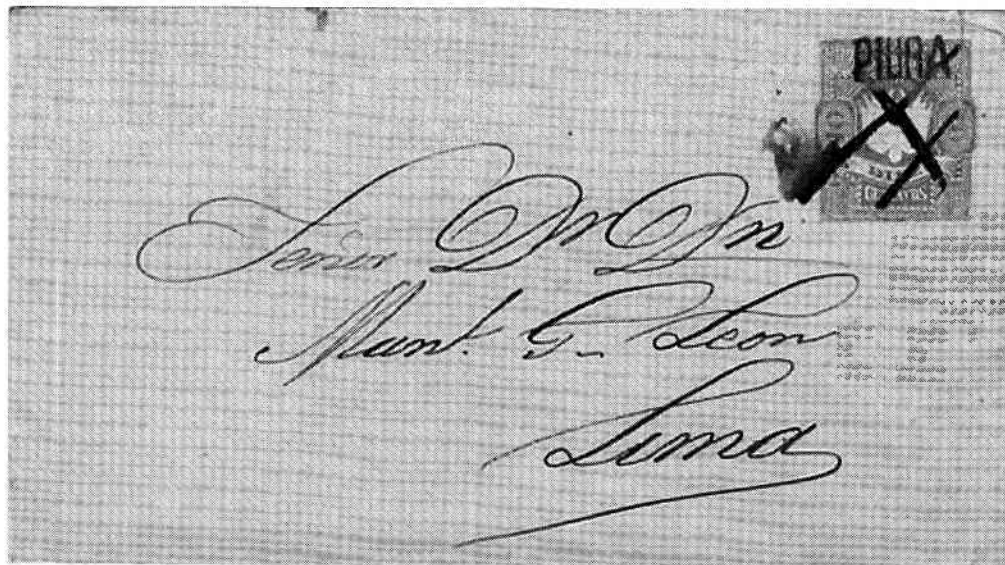 PIURA
Señor Dr Dn
Manl. G. Leon
Lima